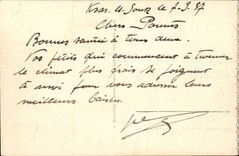 Ksar-el-Souk le 7-3.37
Chers Parents
Bonne santé à tous deux.
Vos petits qui commencent à trouver
le climat plus frais se joignent
à moi pour vous adresser leurs
meilleurs baisers